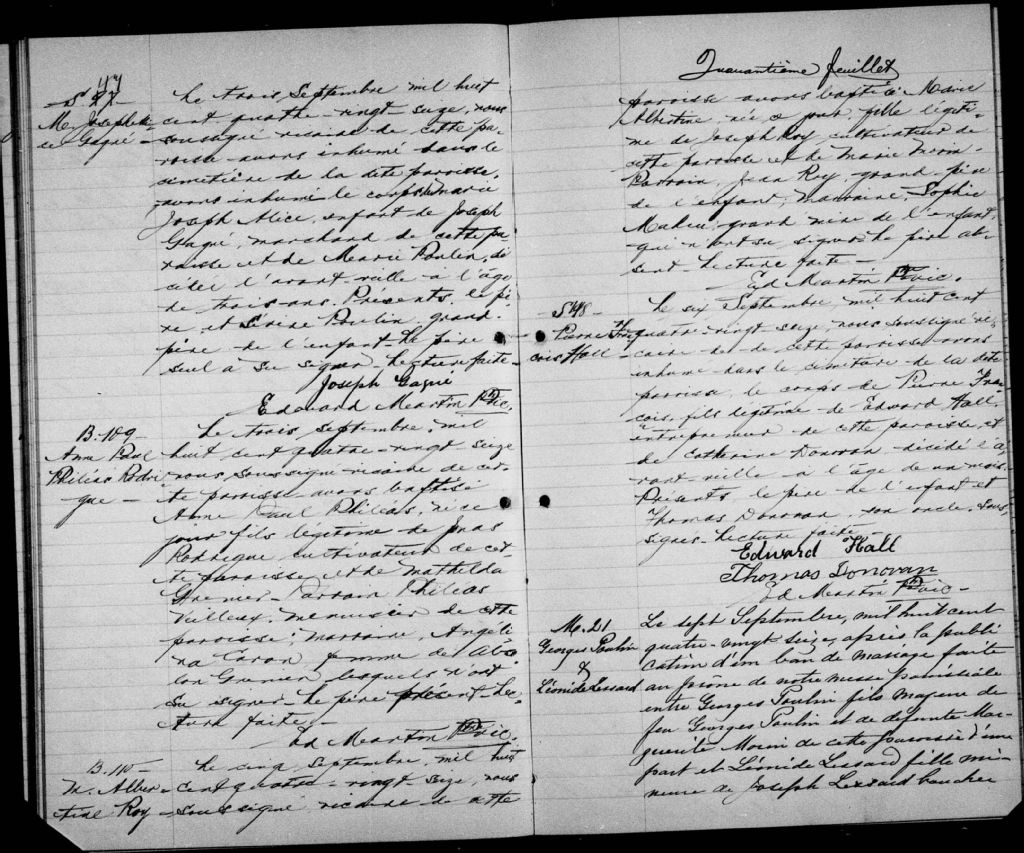 S 47
M. Joseph A-
ce Gagné -
Le trois Septembre mil huit
cent quatre-vingt seize, nous
soussigné vicaire de cette pa-
roisse avons inhumé dans le
cimetière de la dite paroisse,
avons inhumé le corps de Marie
Joseph Alice, enfant de Joseph
Gagné, marchand de cette pa-
roisse et de Marie Poulin, dé-
cédée l'avant-veille à l'âge
de trois ans. Présents le pè-
re et Poulin, grand-
père de l'enfant le père
seul a su signer. Lecture faite-
Joseph Gagné
Edouard Martin Ptre Vic.
B. 109-
Ann Paul
Philias Rodri
gue -
Le trois septembre, mil
huit cent quatre-vingt seize
nous, soussigné vicaire de cet-
te paroisse avons baptisé
Anne Paul Philias, né ce
jour fils légitime de Jonas
Rodrigue cultivateur de cet-
te paroisse et de Mathilda
Grenier- Parrain Philias
Veilleux, menuisier de cette
paroisse; marraine, Angéli-
na Caron femme de Abso-
lon Grenier lesquels n'ont
su signer- le père présent Lec-
ture faite.-
Ed Martin Ptre Vic.
B. 110-
M. Alber-
tine Roy -
Le cinq Septembre, mil huit
cent quatre-vingt seize, nous
soussigné vicaire de cette
Quarantième feuillet
paroisse avons baptisé Marie
Albertine, née ce jour, fille légiti-
me de Joseph Roy cultivateur de
cette paroisse et de Marie Morin-
Parrain, Jean Roy, grand-père
de l'enfant, marraine, Sophie
Maheu, grand mère de l'enfant,
qui n'ont su signer. Le père ab-
sent- Lecture faite-
Ed Martin Ptre Vic.
S 48-
Pierre Fran
cois Hall -
Le six Septembre mil huit cent
quatre-vingt seize, nous soussigné vi-
caire de de cette paroisse avons
inhumé dans le cimetière de la dite
paroisse, le corps de Pierre Fran-
cois, fils légitime de Edward Hall,
entrepreneur de cette paroisse, et
de Catherine Donovan- décédé l'a-
vant-veille à l'âge de un mois.
Présents le père de l'enfant et
Thomas Donovan, son oncle, sous-
signés- Lecture faite
Edward Hall
Thomas Donovan
Ed Martin Ptre Vic-
M. 21
Georges Poulin
&
Léonide Lessard
Le sept Septembre, mil huit cent
quatre-vingt seize, après la publi
cation d'un ban de mariage faite
au prône de notre messe paroissiale
entre Georges Poulin fils majeur de
feu Georges Poulin et de défunte Mar-
guerite Morin de cette paroisse d'une
part et Léonide Lessard fille mi-
neure de Joseph Lessard boucher